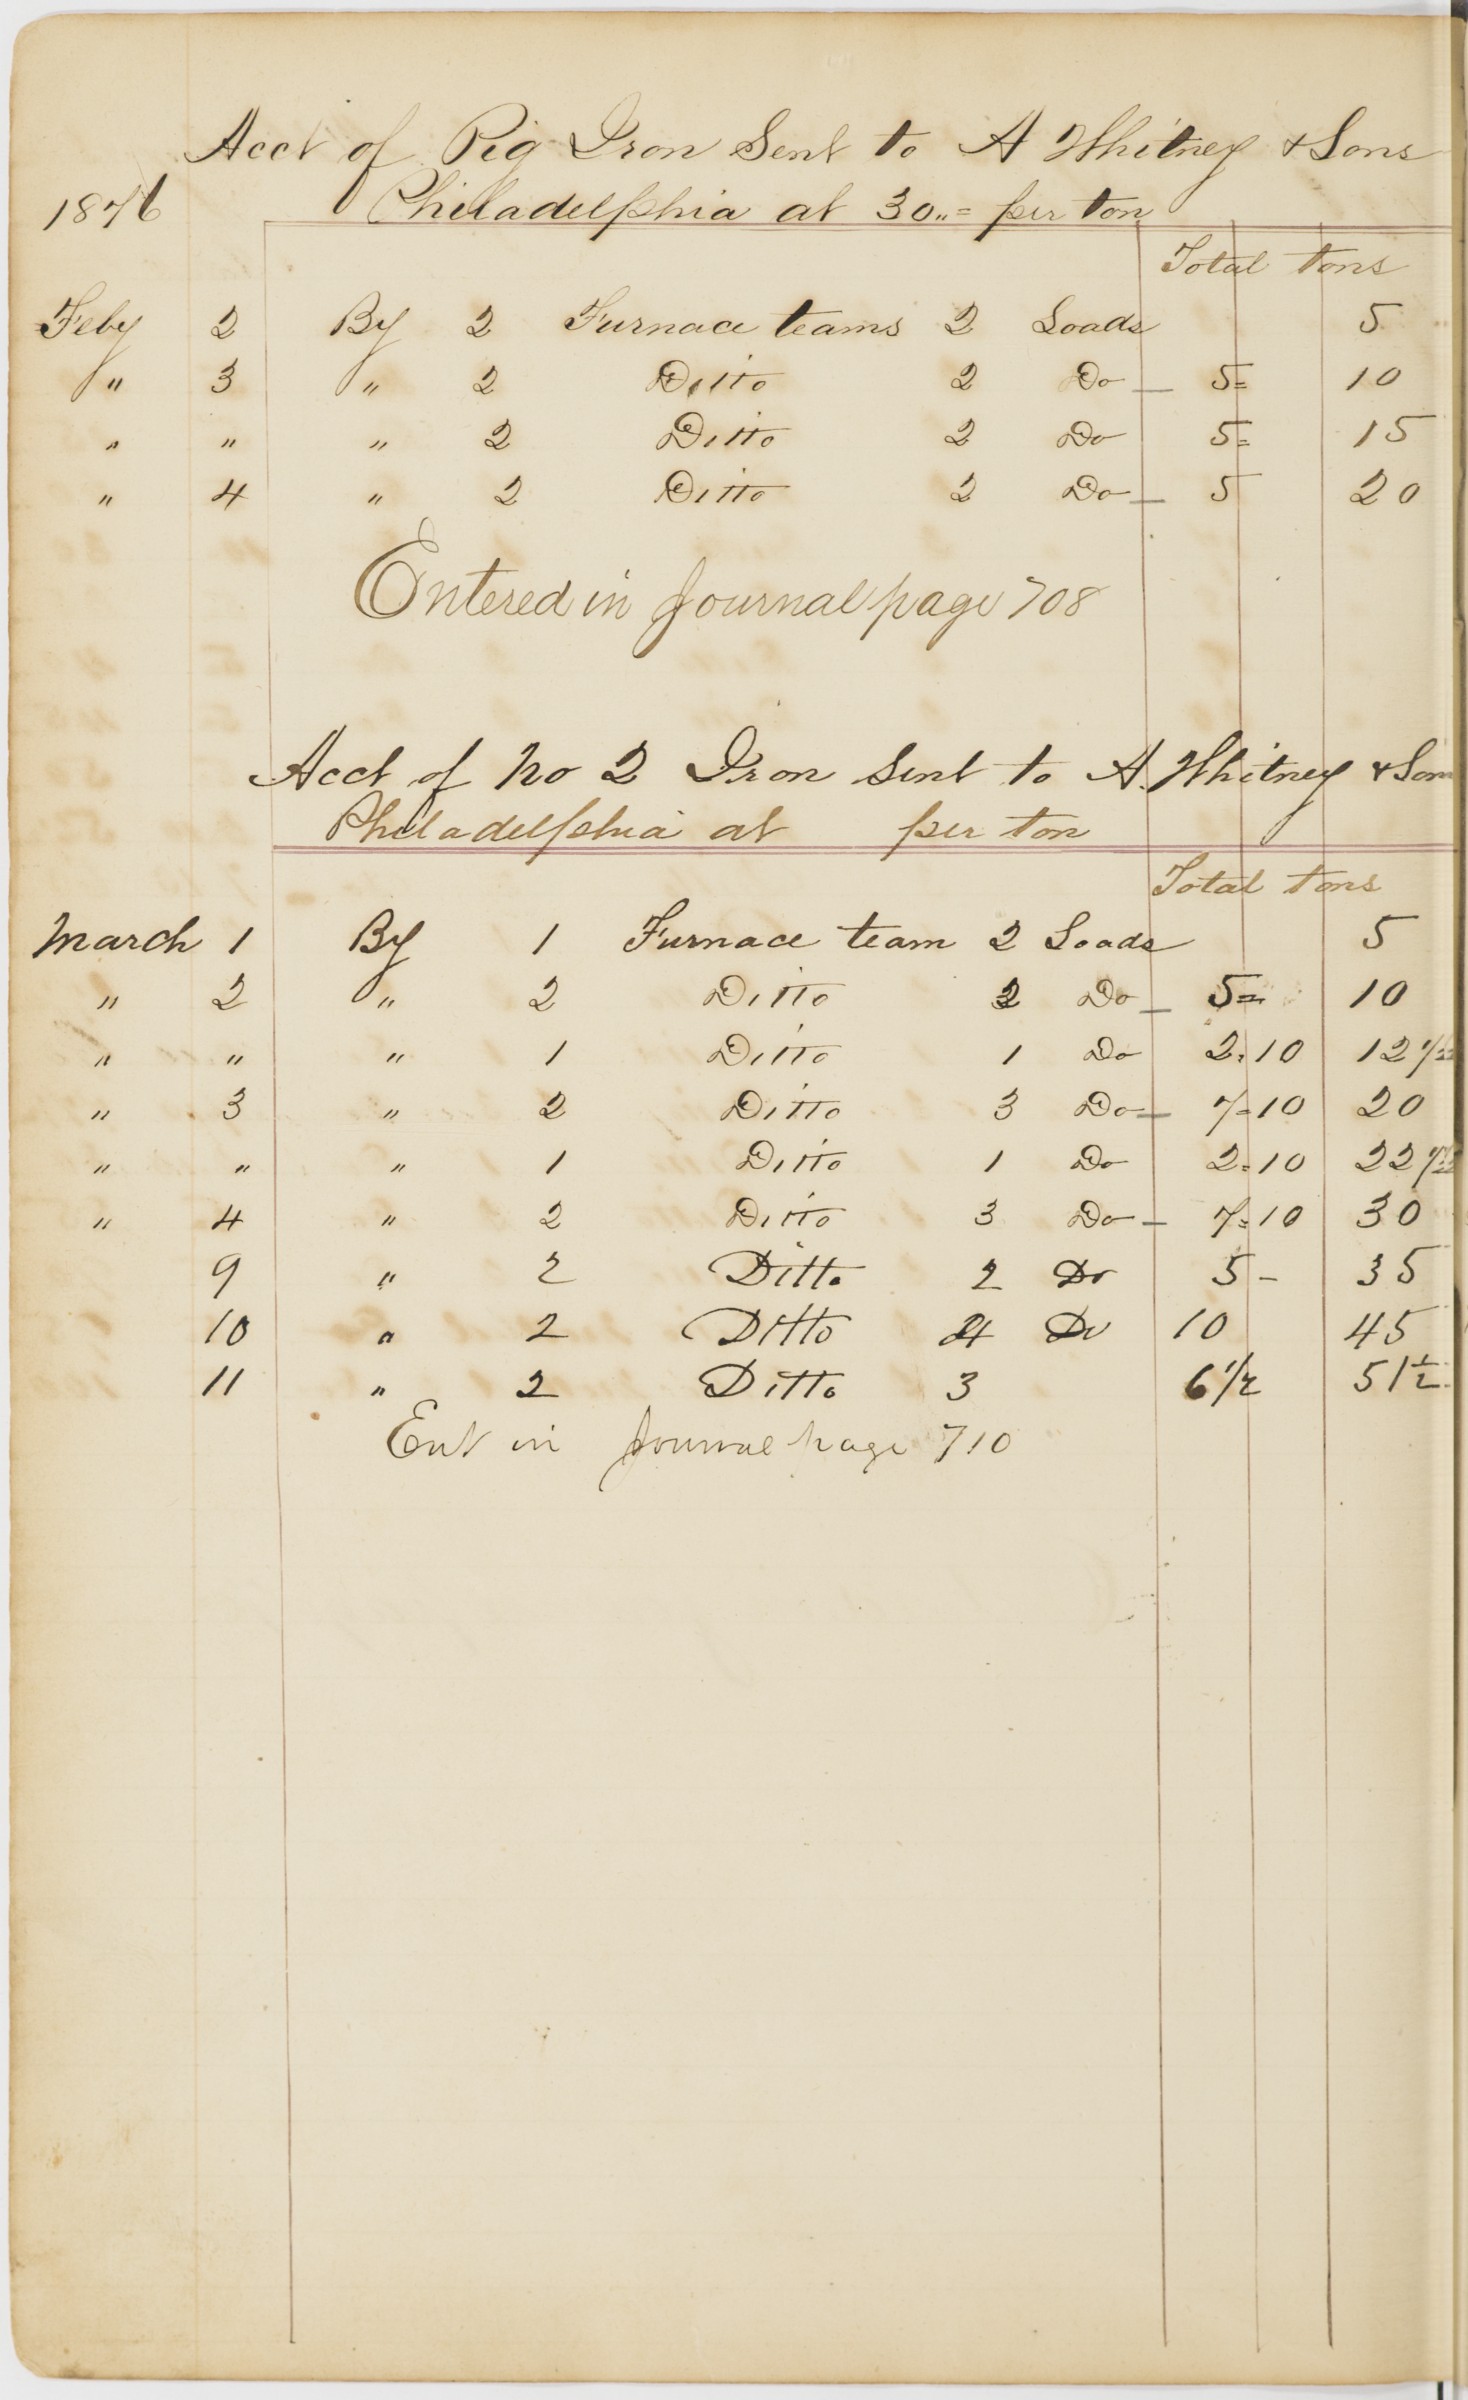 Acct of Pig Iron Sent to A Whitney & Sons
1876 Philadelphia at 30,,= per ton
Total tons
Feby 2 By 2 Furnace teams 2 Loads 5
" 3 " 2 Ditto 2 Do — 5= 10
" " " 2 Ditto 2 Do 5= 15
" 4 " 2 Ditto 2 Do — 5 20
Entered in Journal page 708
Acct of No 2 Iron Sent to A. Whitney & Sons
Philadelphia at per ton
Total tons
March 1 By 1 Furnace team 2 Loads 5
" 2 " 2 Ditto 2 Do — 5= 10
" " " 1 Ditto 1 Do 2=10 12
" 3 " 2 Ditto 3 Do — 7=10 20
" " " 1 Ditto 1 Do 2=10 22
" 4 " 2 Ditto 3 Do — 7=10 30
9 " 2 Ditto 2 Do 5- 35
10 " 2 Ditto 4 Do 10 45
11 " 2 Ditto 3 6 1/2 51 1/2
Ent in Journal page 710